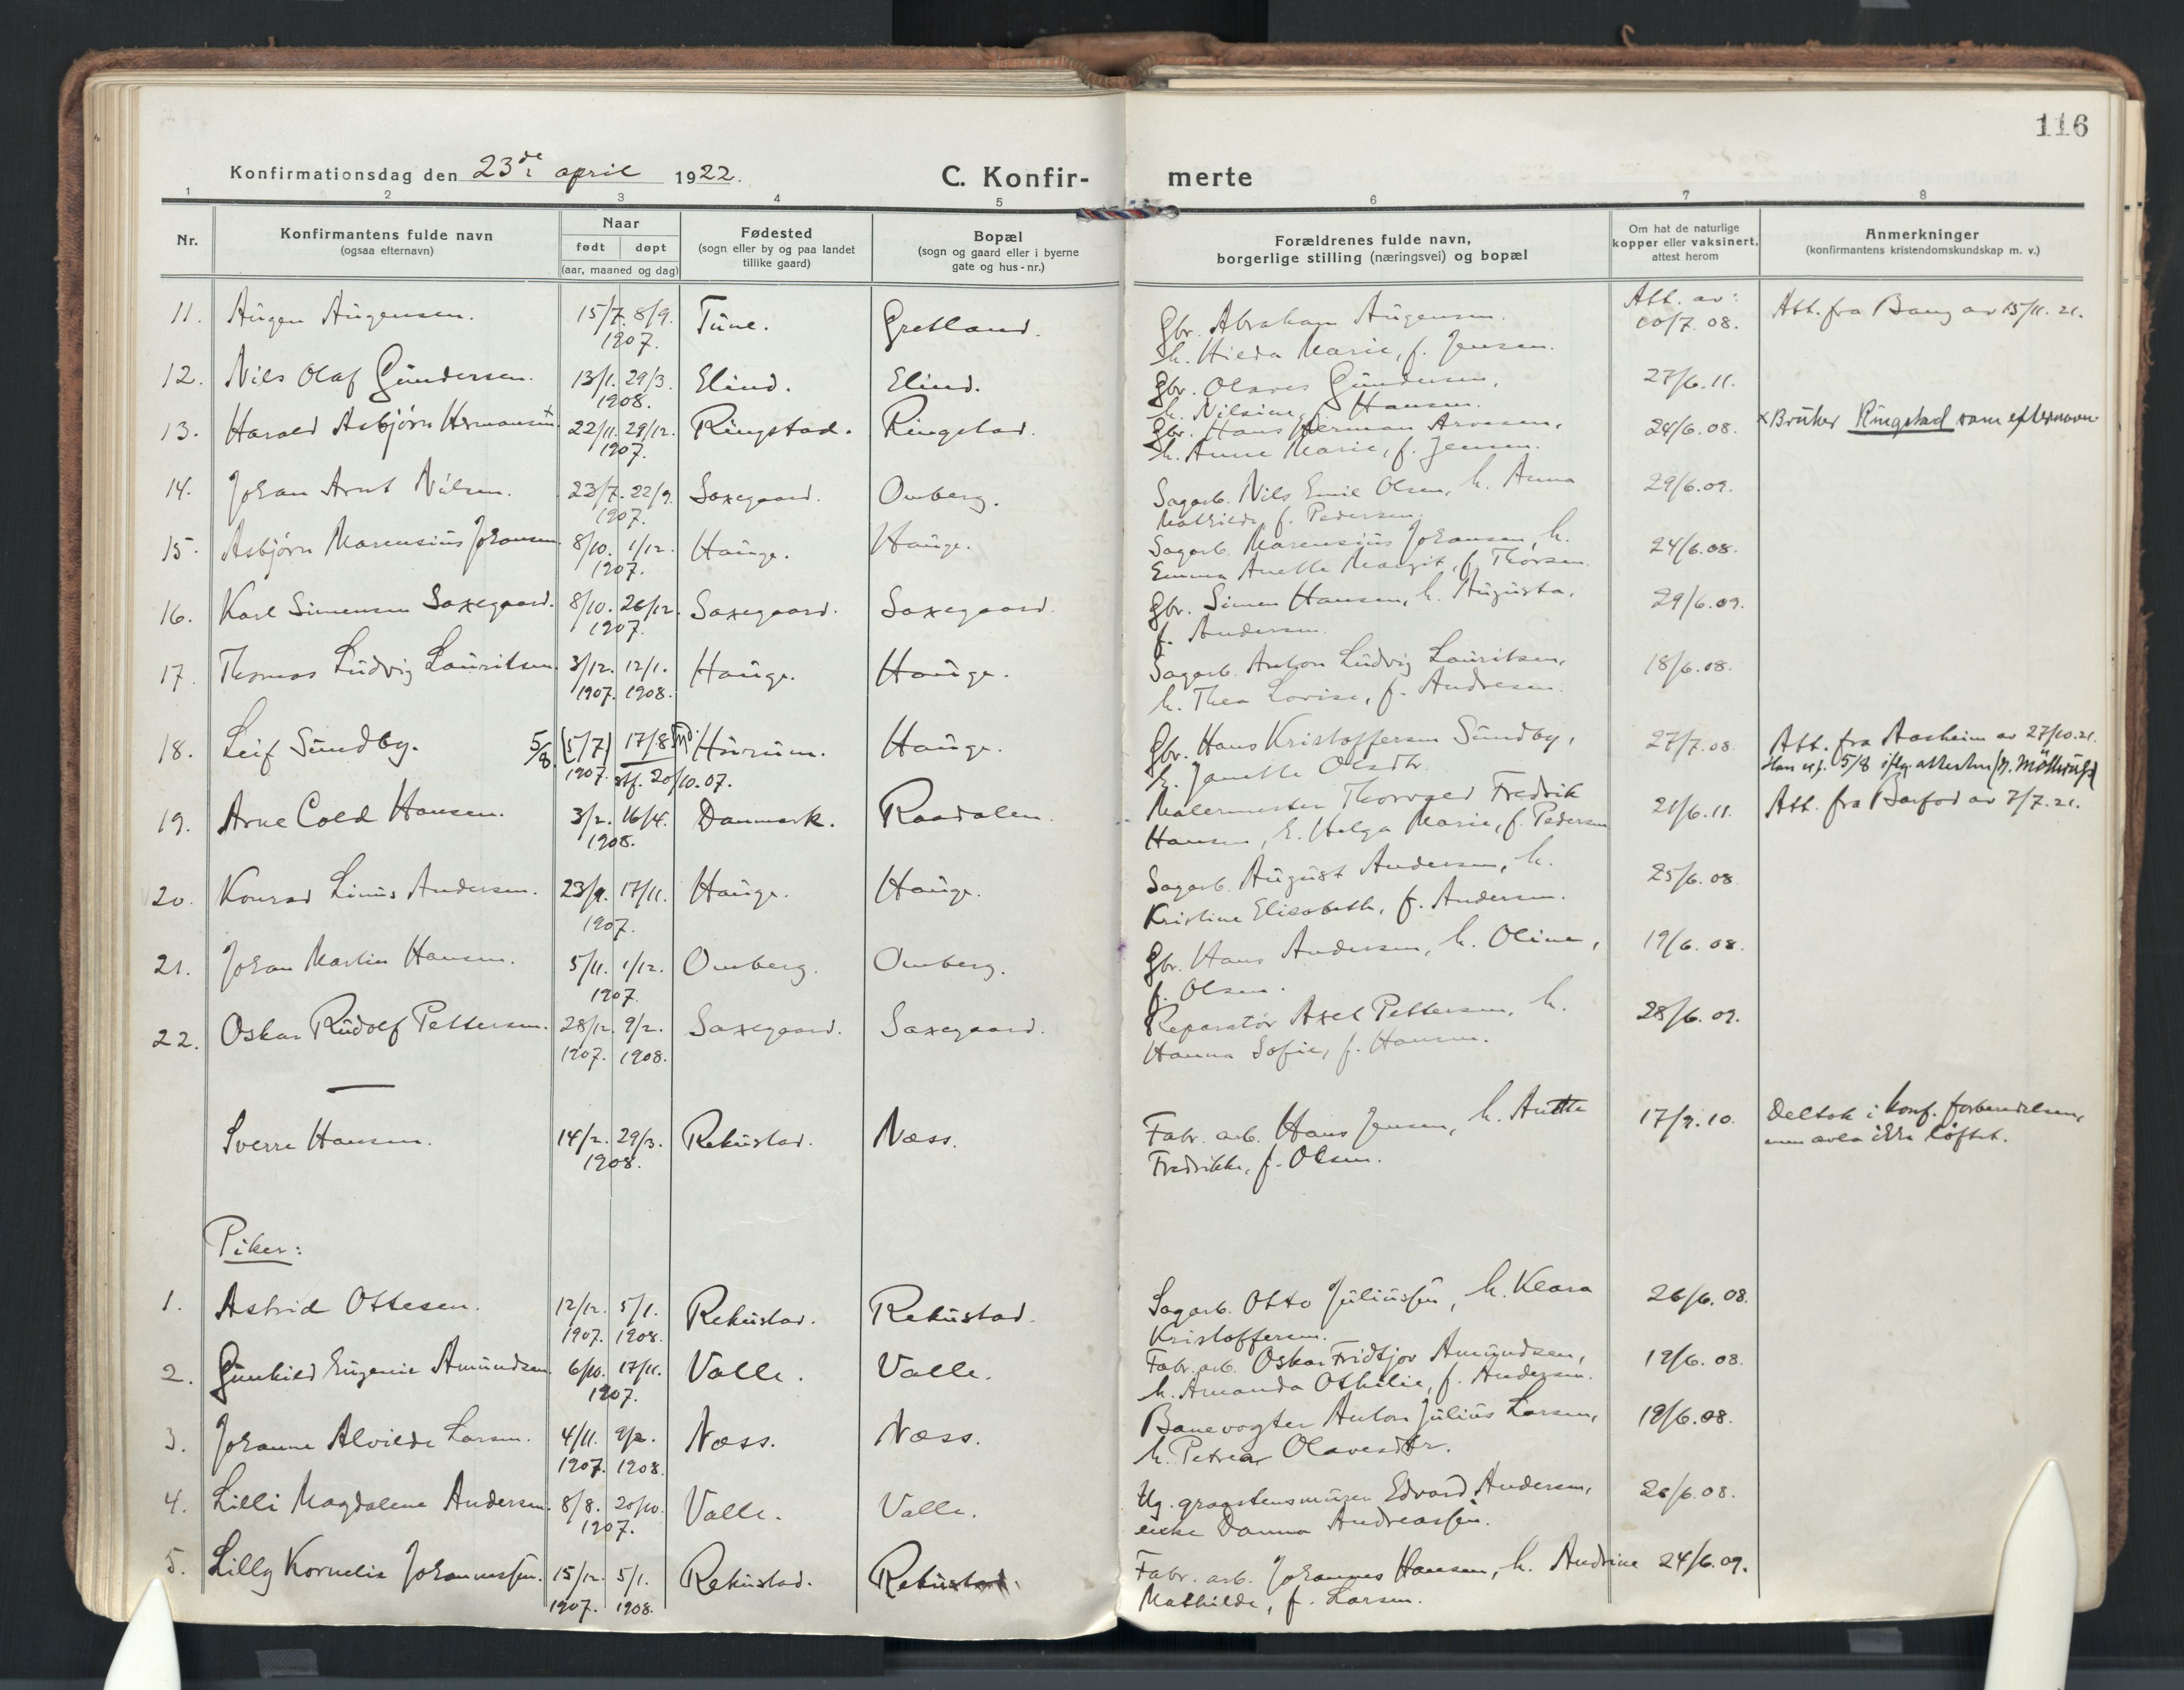 116
Konfirmationsdag den 23de april 1922.
C. Konfir-
merte
1 2 3 4 5 6 7 8
Nr.
Konfirmantens fulde navn
(ogsaa efternavn)
Naar
født døpt
(aar, maaned og dag)
Fødested
(sogn eller by og paa landet
tillike gaard)
Bopæl
(sogn og gaard eller i byerne
gate og hus-nr.)
Forældrenes fulde navn,
borgerlige stilling (næringsvei) og bopæl
Om hat de naturlige
kopper eller vaksinert,
attest herom
Anmerkninger
(konfirmantens kristendomskundskap m. v.)
11. Augen Augensen. 15/7. 8/9. Tune. Gretland. Gbr. Abraham Augensen. Att. av: Att. fra Bang av 15/11. 21.
1907. h. Hilda Marie, f. Jensen. /7. 08.
12. Nils Olaf Gundersen. 13/1. 29/3. Elind. Elind. Gbr. Olaves Gundersen, 27/6. 11.
1908. h. Nilsine, f. Hansen.
13. Harald Asbjørn Hermansen x 22/11. 29/12. Ringstad. Ringstad. Gbr. Hans Herman Arvesen, 24/6. 08. x Bruker Ringstad som efternavn.
1907. h. Anne Marie, f. Jensen.
14. Johan Arnt Nilsen. 23/7. 22/9. Saxegaard. Omberg. Sagarb. Nils Emil Olsen, h. Anna 29/6. 09.
1907. Mathilde, f. Pedersen.
15. Asbjørn Marensius Johansen. 8/10. 1/12. Hauge. Hauge. Sagarb. Marensius Johansen, h. 24/6. 08.
1907. Emma Anette Margit, f. Thorsen.
16. Karl Simensen Saxegaard. 8/10. 26/12. Saxegaard. Saxegaard. Gbr. Simen Hansen, h. Augusta, 29/6. 09.
1907. f. Andersen.
17. Thomas Ludvig Lauritsen. 3/12. 12/1. Hauge. Hauge. Sagarb. Anton Ludvig Lauritsen, 18/6. 08.
1907. 1908. h. Thea Lovise, f. Andresen.
18. Leif Sundby. 5/8. (5/7) 17/8 Hurum. Hauge. Gbr. Hans Kristoffersen Sundby, 27/7. 08. Att. fra Aasheim av 27/10. 21.
1907. stf. 20/10. 07. h. Janette Olsdtr. Han er f. 5/8 iflg. attesten
19. Arne Cold Hansen. 3/2. 16/4. Danmark. Raadalen. Malermester Thorvald Fredrik 21/6. 11. Att. fra Barfod av 7/7. 21.
1908. Hansen, h. Helga Marie, f. Pedersen
20. Konrad Linus Andersen. 23/9. 17/11. Hauge. Hauge. Sagarb. August Andersen, h. 25/6. 08.
1907. Kristine Elisabeth, f. Andersen.
21. Johan Martin Hansen. 5/11. 1/12. Omberg. Omberg. Gbr. Hans Andersen, h. Oline, 19/6. 08.
1907. f. Olsen.
22. Oskar Rudolf Pettersen. 28/12. 9/2. Saxegaard. Saxegaard. Reparatør Axel Pettersen, h. 28/6. 09.
1907. 1908. Hanna Sofie, f. Hansen.
Sverre Hansen. 14/2. 29/3. Rekustad. Næss. Fabr. arb. Hans Jensen, h. Anette 17/9. 10. Deltok i konf. forberedelsen,
1908. Fredrikke, f. Olsen. men avla ikke løftet.
Piker:
1. Astrid Ottesen. 12/12. 5/1. Rekustad. Rekustad. Sagarb. Otto Juliussen, h. Klara 26/6. 08.
1907. 1908. Kristoffersen.
2. Gunhild Eugenie Amundsen. 6/10. 17/11. Valle. Valle. Fabr. arb. Oskar Fridtjov Amundsen, 19/6. 08.
1907. h. Amanda Othilie, f. Andersen.
3. Johanne Alvilde Larsen. 4/11. 9/2. Næss. Næss. Banevogter Anton Julius Larsen, 19/6. 08.
1907. 1908. h. Petrea Olavesdtr.
4. Lilli Magdalene Andersen. 8/8. 20/10. Valle. Valle. Ug. graastensmurer Edvard Andersen, 26/6. 08.
1907. enke Danna Andreassen.
5. Lilly Kornelia Johannessen. 15/12. 5/1. Rekustad. Rekustad. Fabr. arb. Johannes Hansen, h. Andrine 24/6. 09.
1907. 1908. Mathilde, f. Larsen.